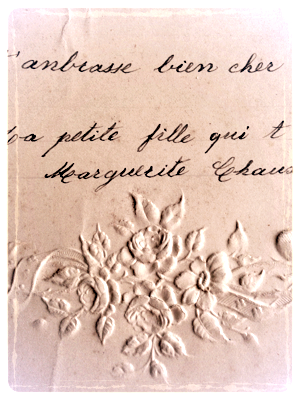 anbrasse bien cher
La petite fille qui t
Marguerite Chau